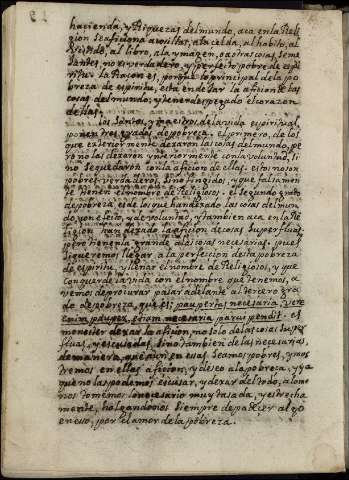 hacienda, y Riquezas del mundo, aca en la Reli
gion se aficiona a cosillas, a la celda, al habito, al
vestido, al libro, a la ymagen, o a otras cosas seme
Jantes, no es verdadero, y perfeto pobre de espi
ritu. la Raçon es, porque lo principal de la po
breza de espiritu, esta en dexar la aficion de las
cosas del mundo, y tener despegado el coraçon
de ellas.
los Santos, y maestros de la vida espiritual,
ponen tres grados de pobreza. el primero, de los
que exteriormente dexaron las cosas del mundo, pe
ro no las dexaron ynteriormente con la voluntad, si
no se quedaron con la aficion de ellas. estos no son
pobres verdaderos, sino fingidos, y que falsamen
te tienen el nombre de Religiosos. el Segundo grado
de pobreza, es de los que han dexado las cosas del mun
do, con efeto, y de voluntad, y tambien aca en la Re
ligion han dexado la aficion de cosas superfluas,
pero tienen la grande a las cosas necesarias. pues
si queremos llegar a la perfecion desta pobreza
de espiritu, y llenar el nombre de Religiosos, y que
Concuerde la vida con el nombre que tenemos, a
vemos de procurar pasar adelante al tercero gra
do de pobreza, que es paupertas necesaria, vere
enim pauper, etiam necesaria parui pendit. es
menester dexar la aficion, no solo de las cosas super
fluas, y escusadas, sino tambien de las necesarias,
de manera, que aun en esas seamos pobres, y mos
tremos en ellas aficion, y deseo a la pobreza, y ya
que no las podemos escusar, y dexar del todo, a lome
nos tomemos lo necesario muy tasada, y estrecha
mente, holgandonos siempre de padecer algo
en eso, por el amor de la pobreza.